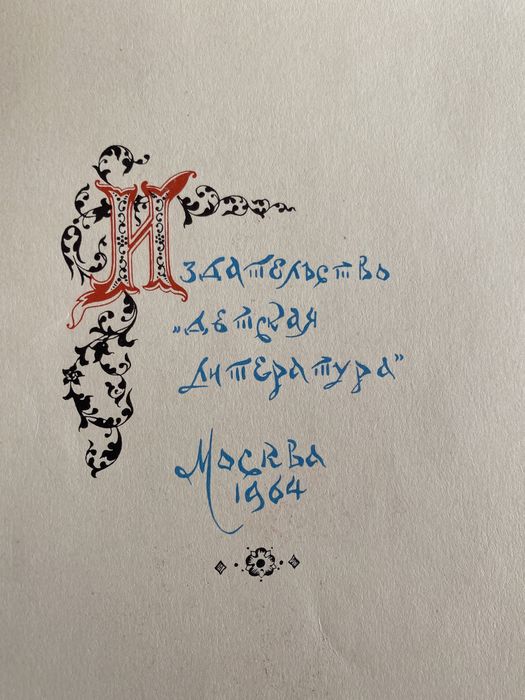 Издательство
„Детская
Литература”
Москва
1964